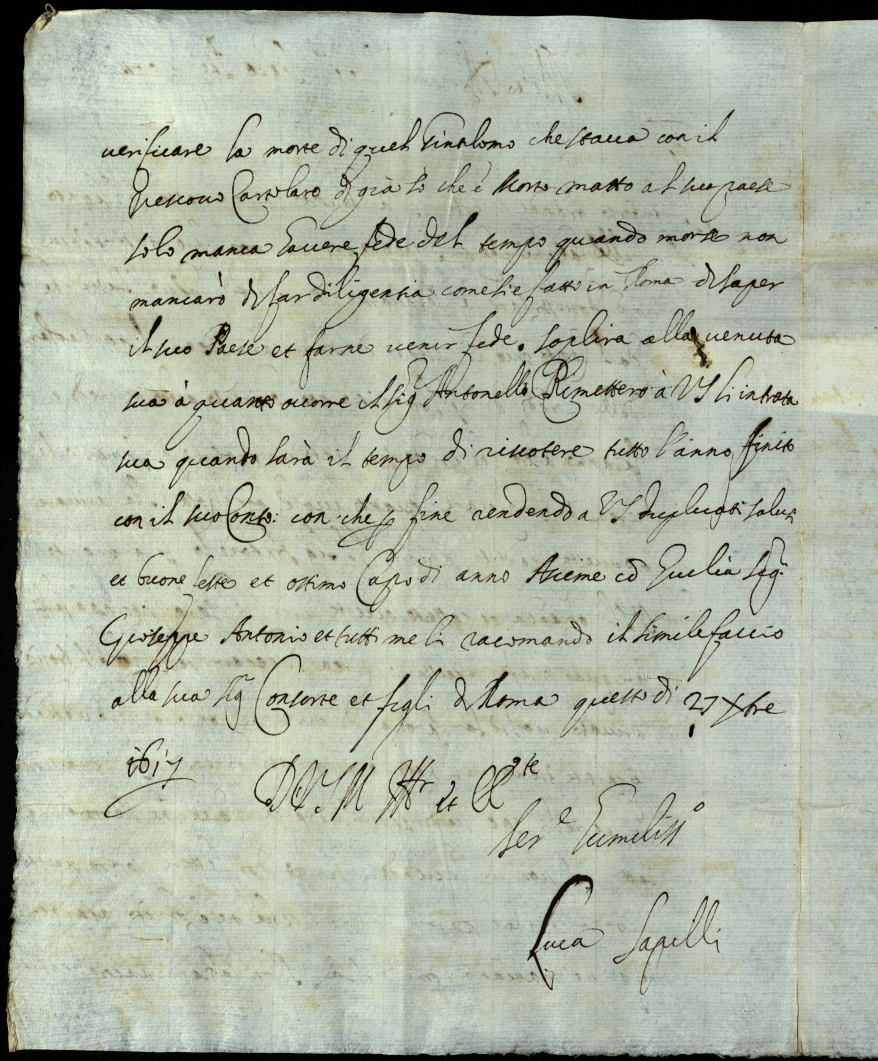 verificare la morte di quel Gintilomo che stava con il
Vescovo Cartolaro di già sò che è morto matto al suo paese
solo manca havere fede del tempo quando morse non
mancarò di far diligentia come si è fatto in Roma di saper
il suo Paese et farne venir fede. supplira alla venuta
sua à quanto ocorre il sigr Antonello Rimettero à VS li intrata
sua quando sarà il tempo di riscotere tutto l'anno finito
con il suo Conto: con che fine rendendo a VS duplicati saluti
et buone feste et ottimo Capo di anno Asieme cò Giulia Sigr
Gioseppe Antonio et tutti me li racomando il simile faccio
alla sua sigr Consorte et figli di Roma questo di 27 Xbre
1617
D V S M Ill et
Ser.e Humiliss.o
Luca Sapilli